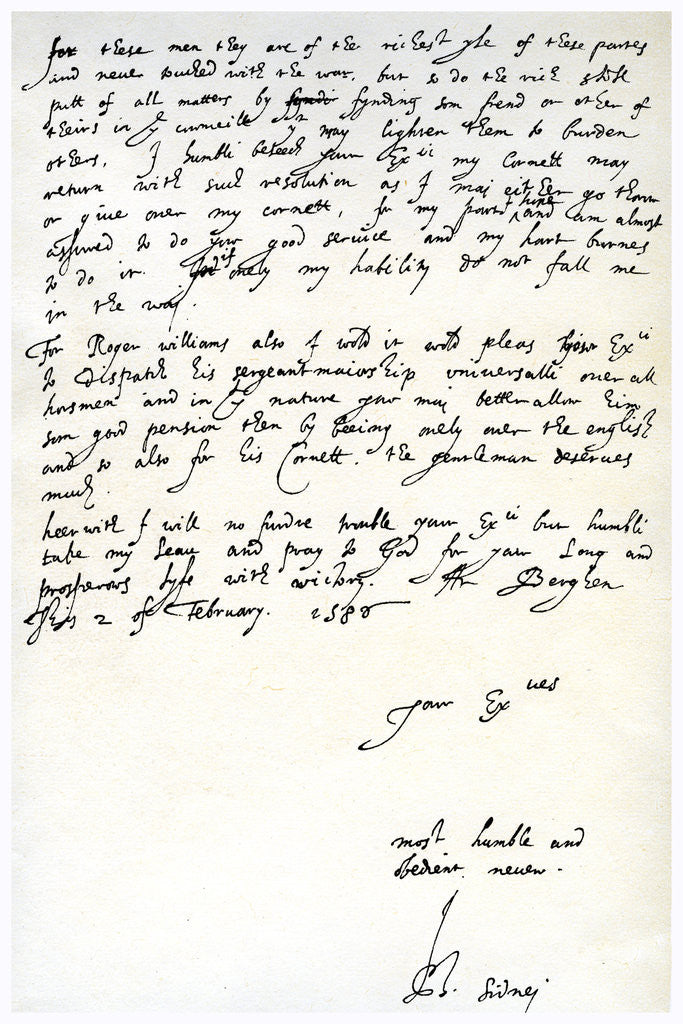 for these men they are of the richest yle of these partes
and neuer touched with the war, but so do the rich still
putt of all matters by fynding som frend or other of
theirs in yt may lighten them to burden
others. I humbli beseech your Ex ii my Cornett may
return with such resolution as I maj either go thorow
or giue ouer my cornett, for my part and am almost
assured to do yow good seruice and my hart burnes
to do it. if onely my hability do not fall me
in the waj.
For Roger williams also I wold it wold pleas your Ex ii
to dispatch his sergeant maiorship vniuersalli ouer all
horsmen and in yt nature yow maj better allow him
som good pension then by beeing onely ouer the english
and so also for his Cornett. the gentleman deserues
much.
heerwith I will no furdre trouble your Ex ii but humbli
take my leau and pray to God for your Long and
prosperows lyfe with victory. At Berghen
this 2 of February. 1586
your Ex ues
most humble and
obedient neuew.
Ph. Sidnej